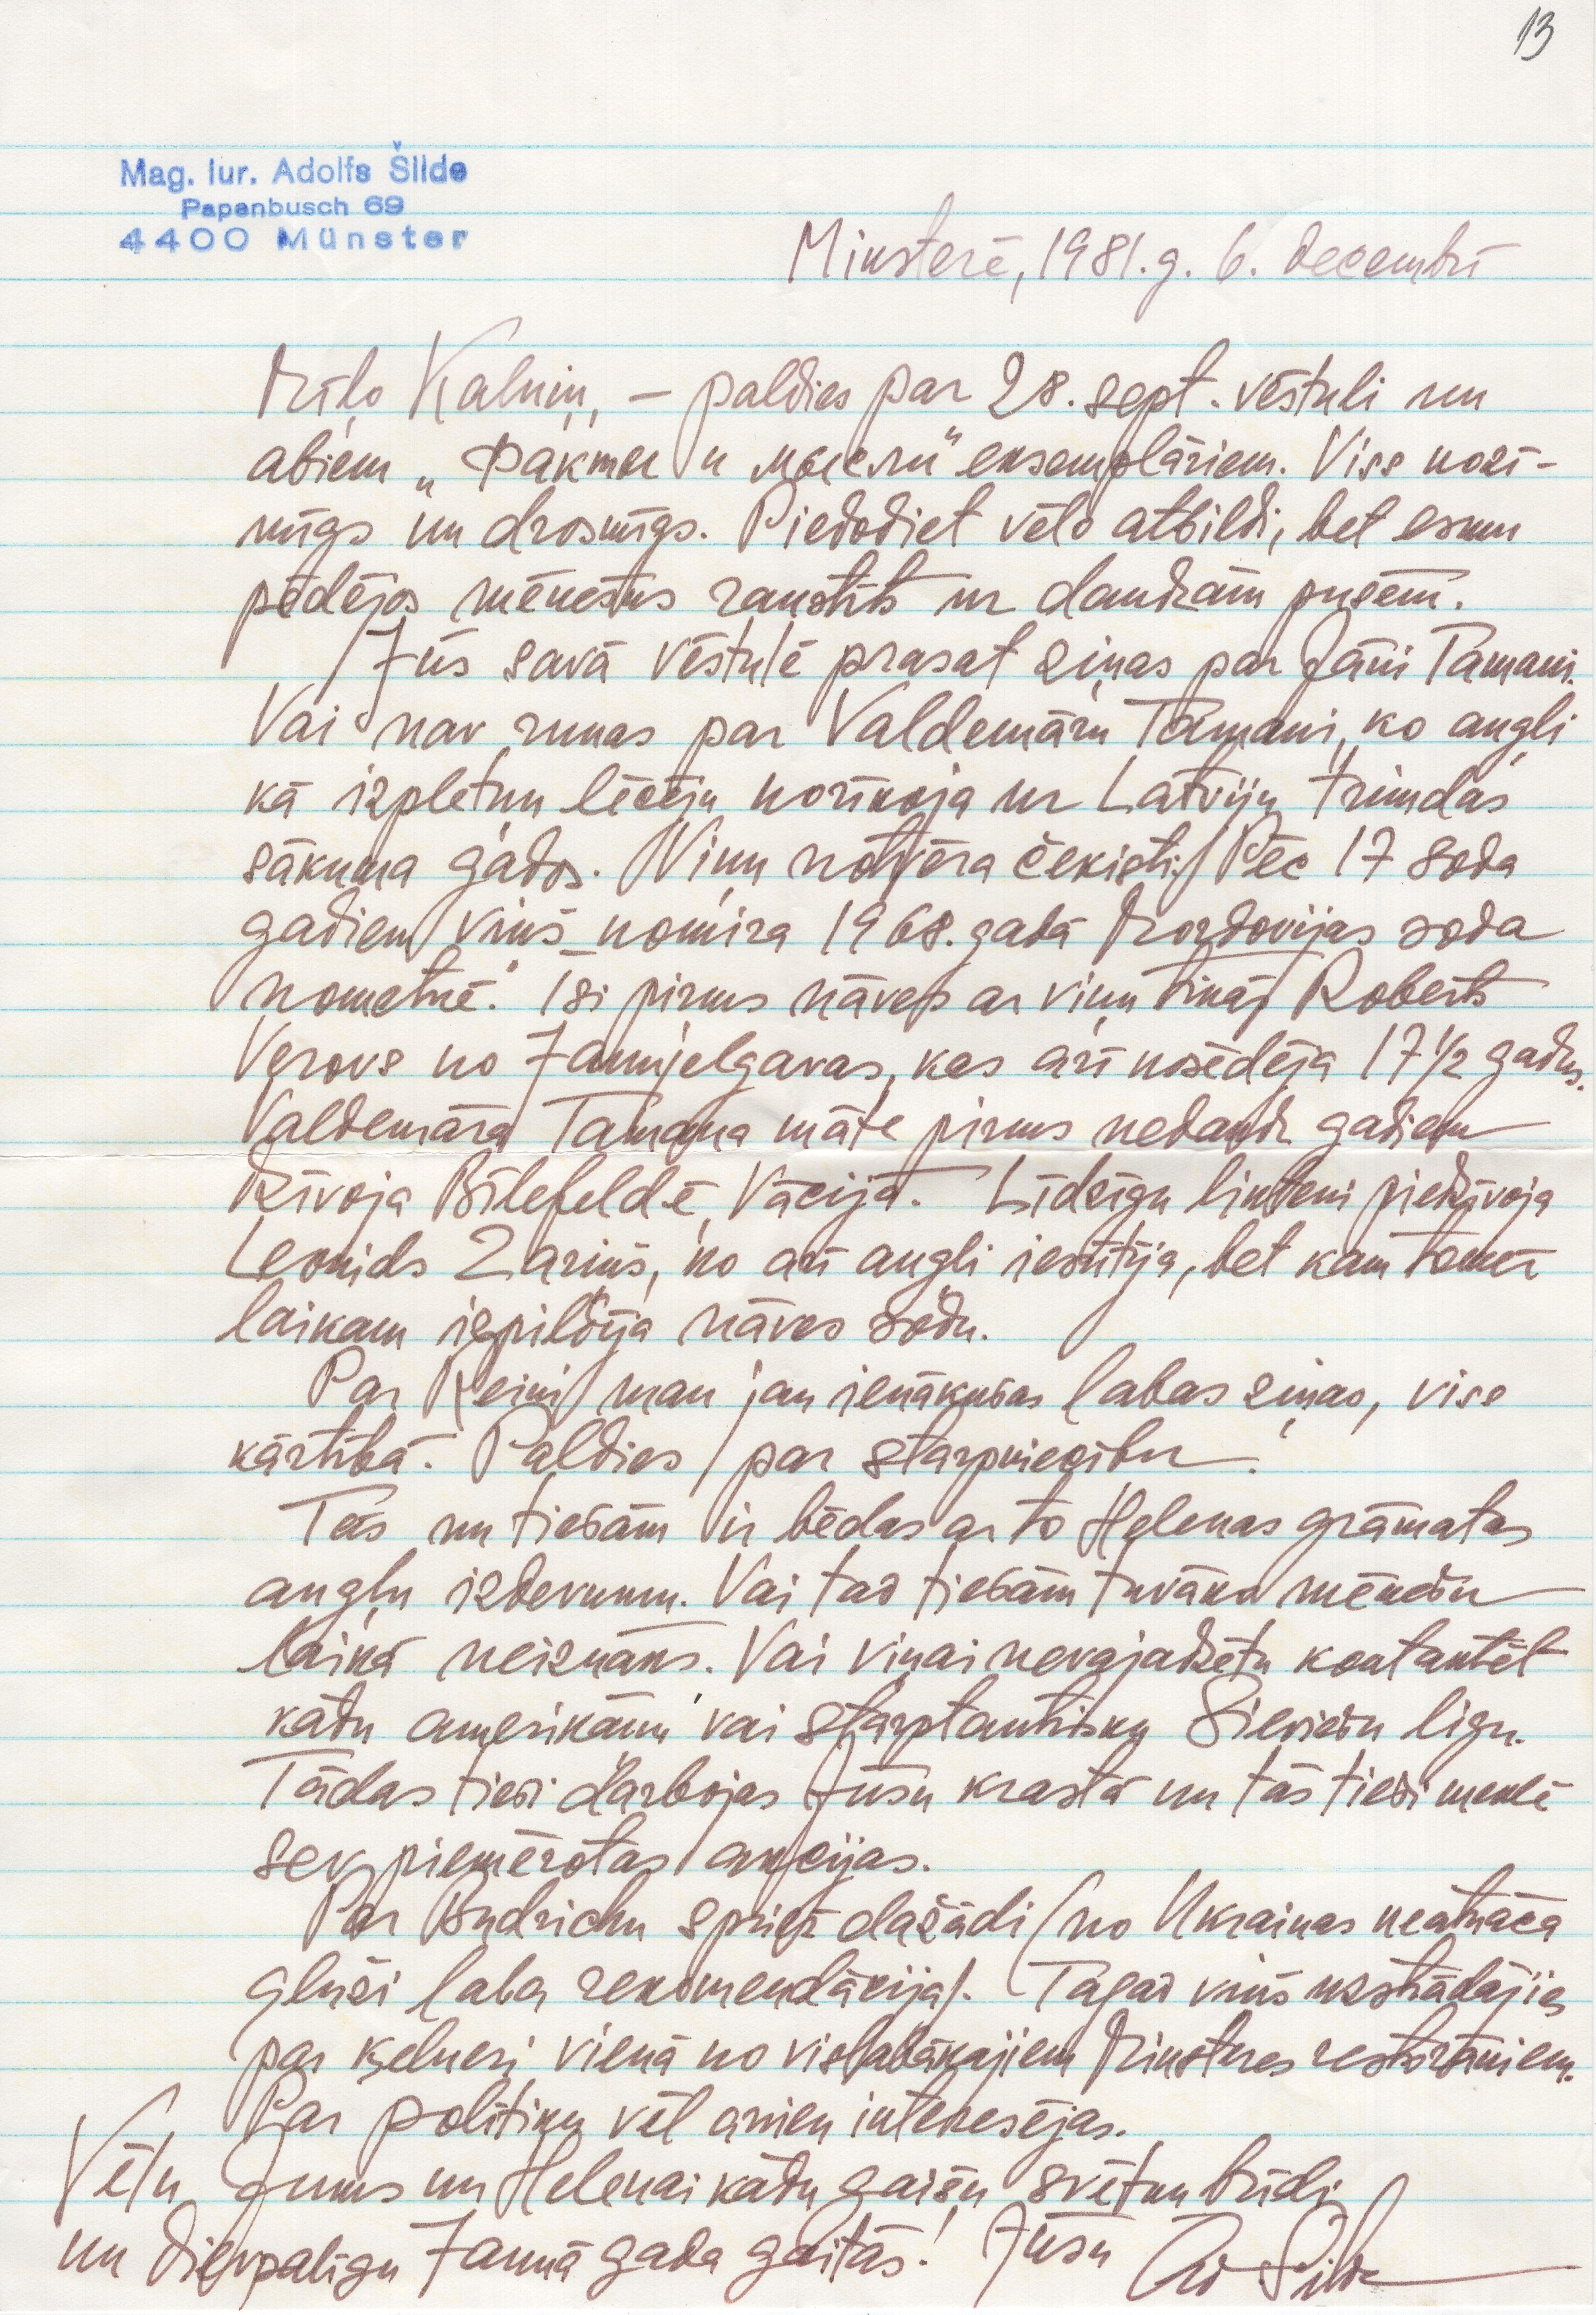 13
Mag. iur. Adolfs Šilde
Papenbusch 69
4400 Münster
Minsterē, 1981. g. 6. decembrī
Mīļo Kalniņ, – paldies par 28. sept. vēstuli un
abiem „Факты и мысли" eksemplāriem. Viss nozī-
mīgs un drosmīgs. Piedodiet vēlo atbildi, bet esmu
pēdējos mēnešus raustīts uz daudzām pusēm.
Jūs savā vēstulē prasat ziņas par Jāni Tamani.
Vai nav runas par Valdemāru Tamani, ko angļi
kā izpletņu lēcēju norīkoja uz Latviju trimdas
sākuma gados. Viņu notvēra čekisti. Pēc 17 soda
gadiem viņš nomira 1968. gadā Mordovijas soda
nometnē. Īsi pirms nāves ar viņu tikās Roberts
Verovs no Jaunjelgavas, kas arī nosēdēja 17 1/2 gadus.
Valdemāra Tamaņa māte pirms nedaudz gadiem
dzīvoja Bīlefeldē, Vācijā. Līdzīgu likteni piedzīvoja
Leonids Zariņš, ko arī angļi iesūtīja, bet kam tomēr
laikam izpildīja nāves sodu.
Par Ķeini man jau ienākušas labas ziņas, viss
kārtībā. Paldies par starpniecību.
Tās nu tiešām ir bēdas ar to Helēnas grāmatas
angļu izdevumu. Vai tad tiešām tuvāko mēnešu
laikā neiznāks. Vai viņai nevajadzētu kontaktēt
kādu amerikāņu vai starptautisku Sieviešu līgu.
Tādas tieši darbojas Jūsu krastā un tās tieši meklē
sev piemērotas akcijas.
Par Budrichu spriež dažādi (no Ukrainas neatnāca
gluži laba rekomendācija). Tagad viņš uzstādājies
par ķelneri vienā no vislabākajiem Minsteres restorāniem.
Par politiku vēl arvien interesējas.
Vēlu Jums un Helēnai kādu gaišu svētku brīdi
un Dievpalīgu Jaunā gada gaitās! Jūsu Ad. Šilde